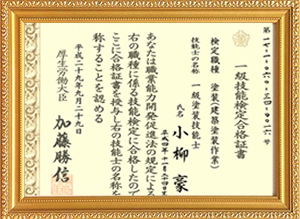 第一七-一-〇六〇-三四-〇二六号
一級技能検定合格証書
検定職種 塗装(建築塗装作業)
技能士の名称 一級塗装技能士
氏名 小柳 豪
あなたは職業能力開発促進法の規定による
右の職種に係る技能検定に合格したので
ここに合格証書を授与し右の技能士の名称を
称することを認める
平成二十九年九月二十九日
厚生労働大臣 加藤勝信